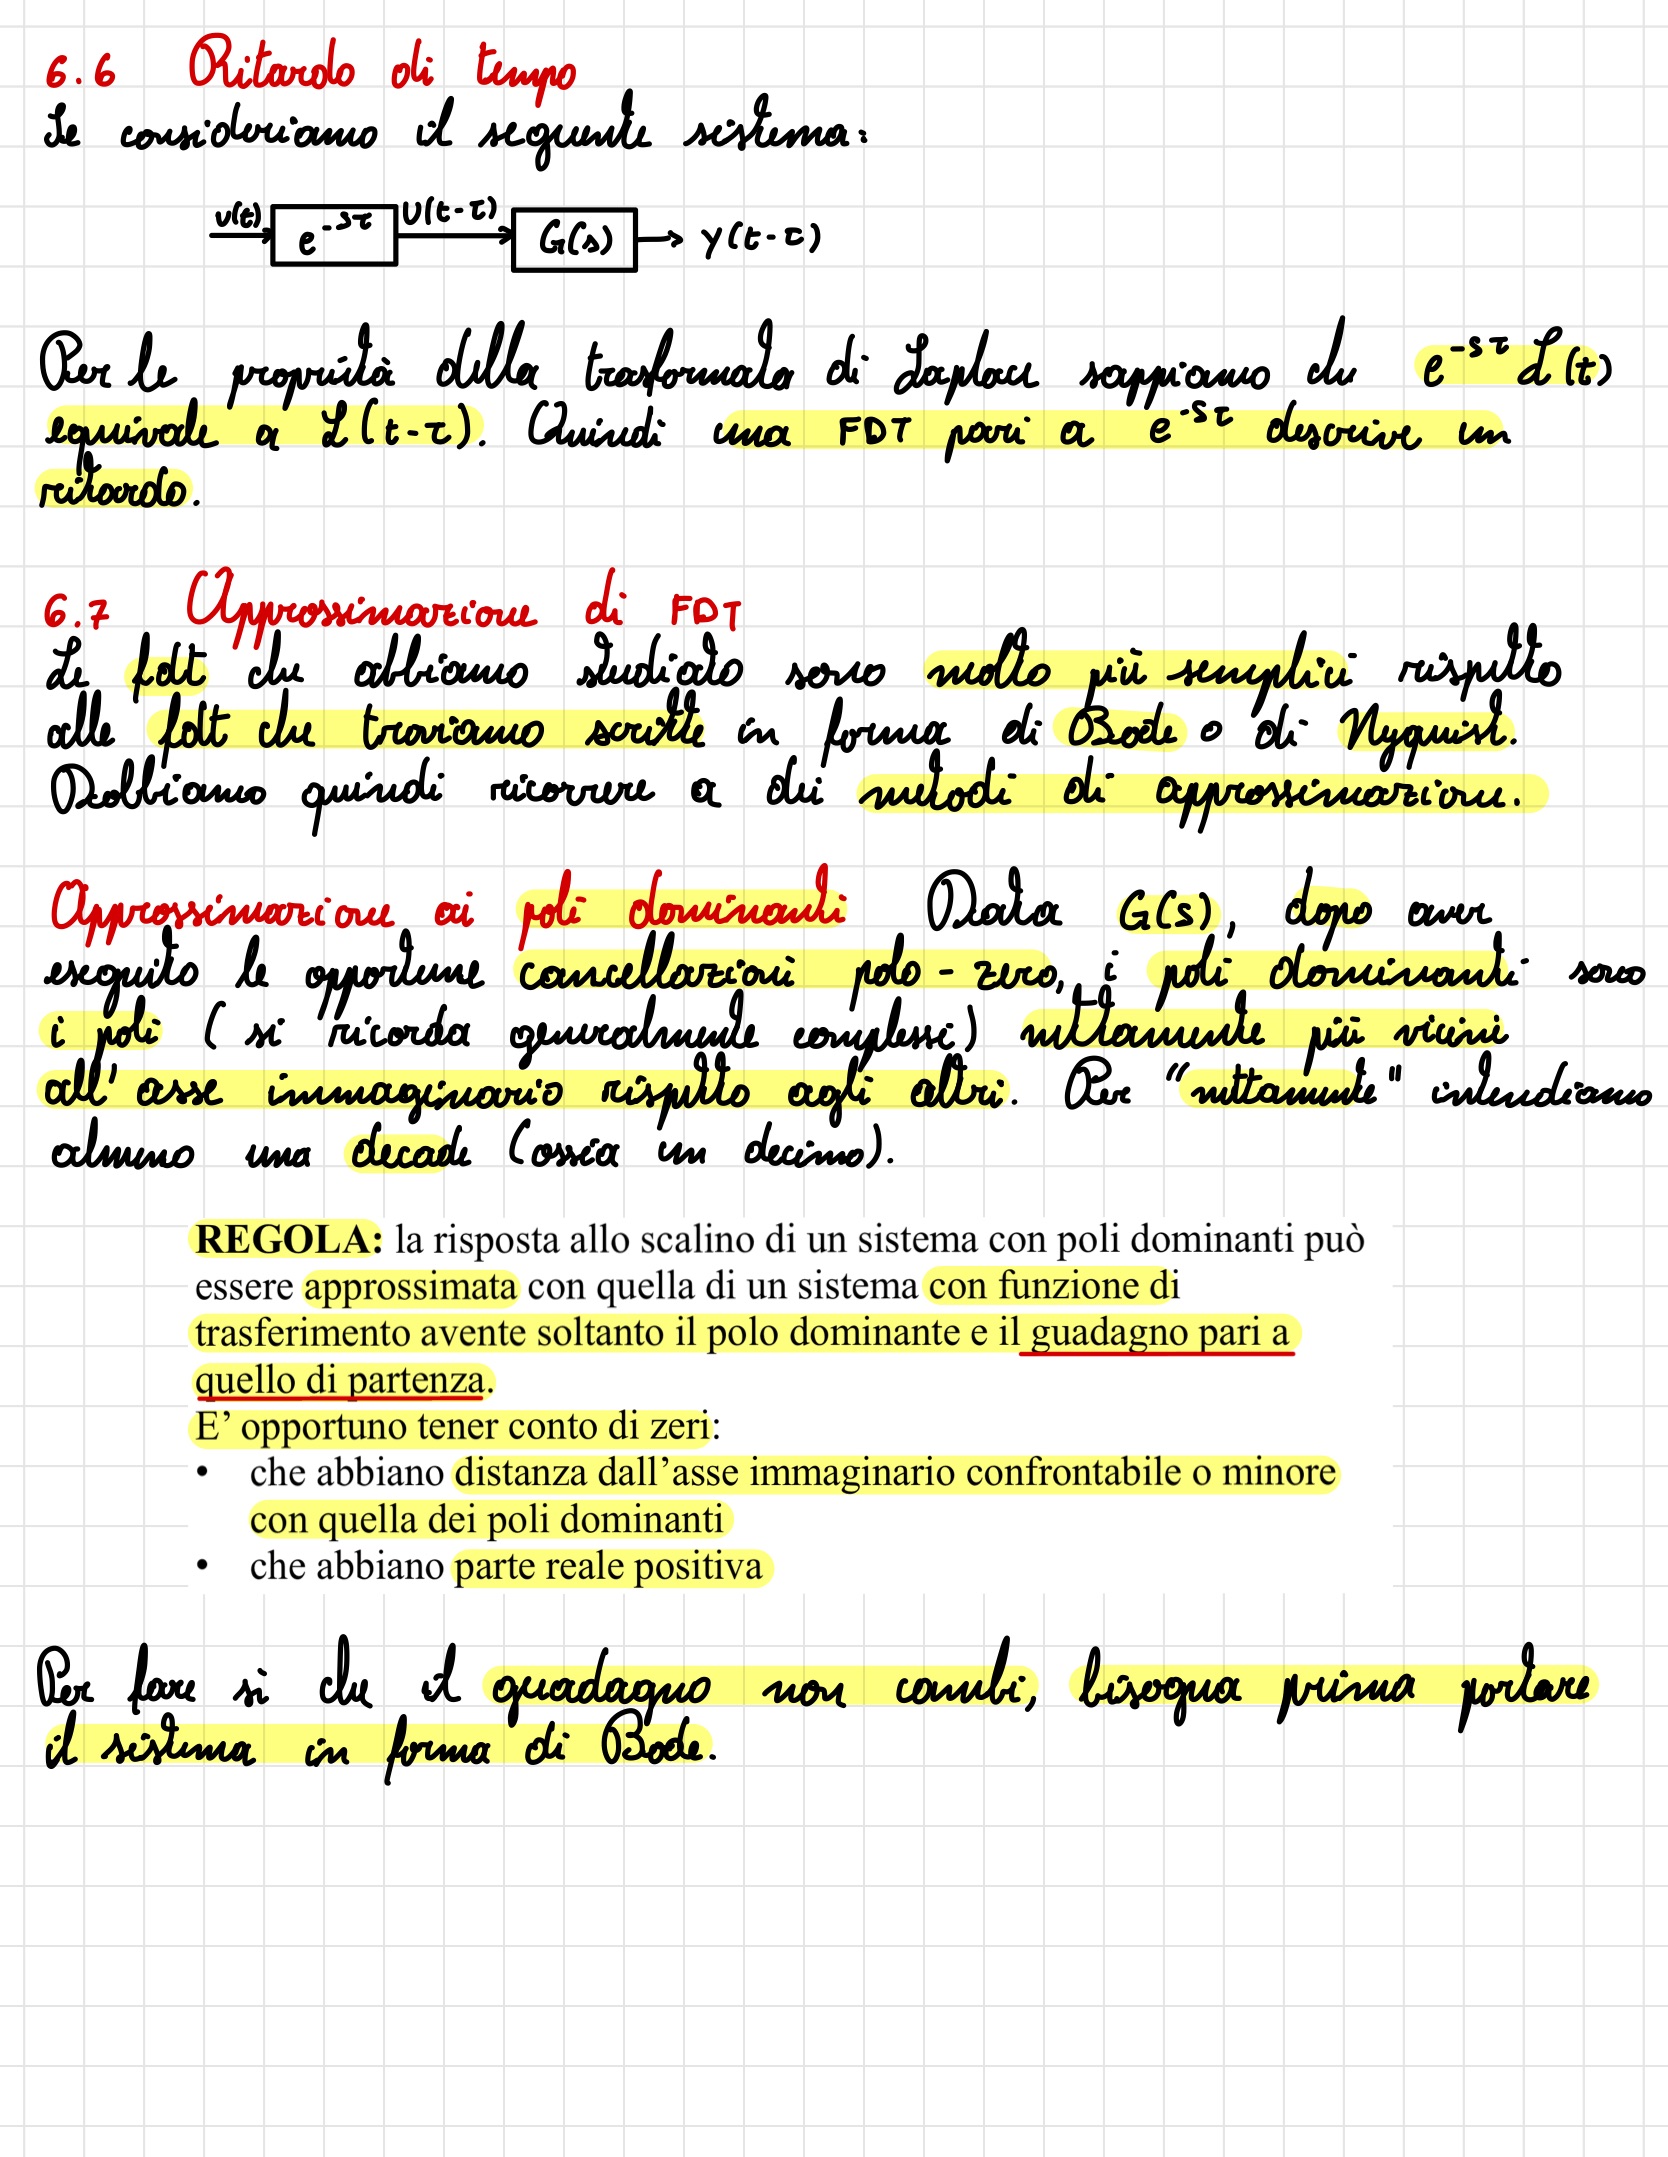 6.6 Ritardo di tempo
Se consideriamo il seguente sistema:
u(t) e^-sτ U(t-τ) G(s) y(t-τ)
Per le proprietà della trasformata di Laplace sappiamo che e^-sτ L(t)
equivale a L(t-τ). Quindi una FDT pari a e^-sτ descrive un
ritardo.
6.7 Approssimazione di FDT
Le fdt che abbiamo studiato sono molto più semplici rispetto
alle fdt che troviamo scritte in forma di Bode o di Nyquist.
Dobbiamo quindi ricorrere a dei metodi di approssimazione.
Approssimazione ai poli dominanti Data G(s), dopo aver
eseguito le opportune cancellazioni polo-zero, i poli dominanti sono
i poli (si ricorda generalmente complessi) nettamente più vicini
all'asse immaginario rispetto agli altri. Per "nettamente" intendiamo
almeno una decade (ossia un decimo).
REGOLA: la risposta allo scalino di un sistema con poli dominanti può
essere approssimata con quella di un sistema con funzione di
trasferimento avente soltanto il polo dominante e il guadagno pari a
quello di partenza.
E' opportuno tener conto di zeri:
• che abbiano distanza dall'asse immaginario confrontabile o minore
con quella dei poli dominanti
• che abbiano parte reale positiva
Per fare si che il guadagno non cambi, bisogna prima portare
il sistema in forma di Bode.